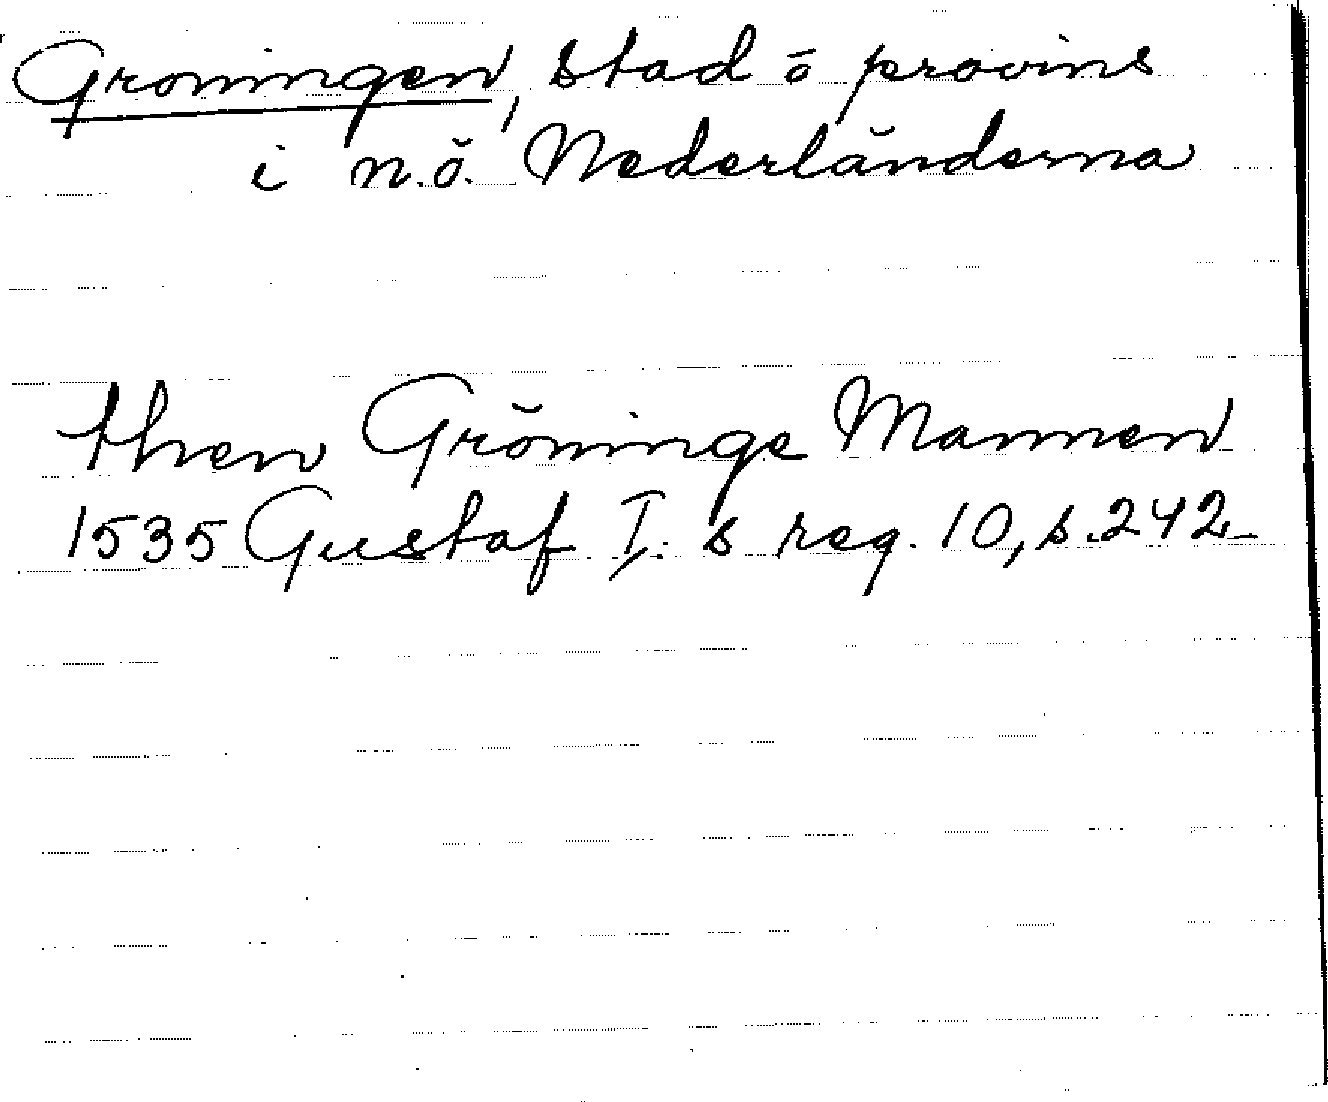 Groningen, stad ō provins
i n.ö. Nederländerna
then Gröninge Mannen
1535 Gustaf I:s reg. 10, s.242